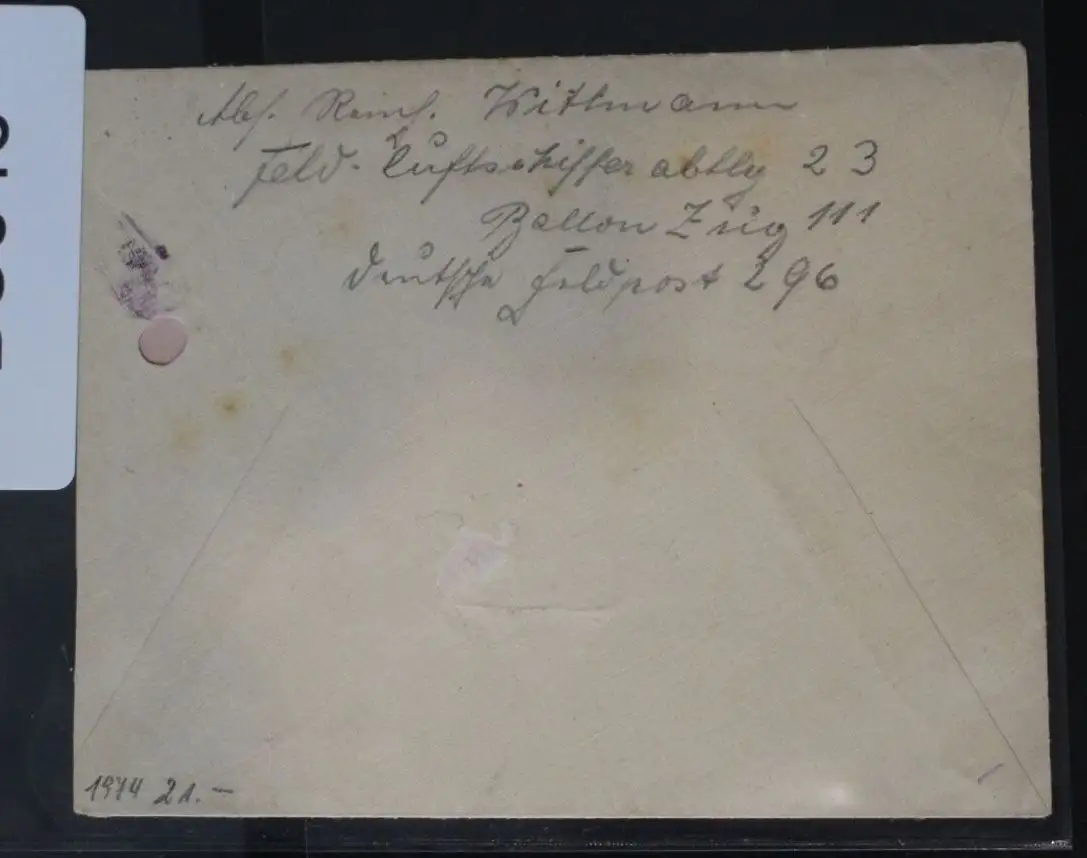 Abs. Reinh. Wittmann
Feld-Luftschifferabtlg 23
Ballon Zug 111
Deutsche Feldpost 296
1974 21.—